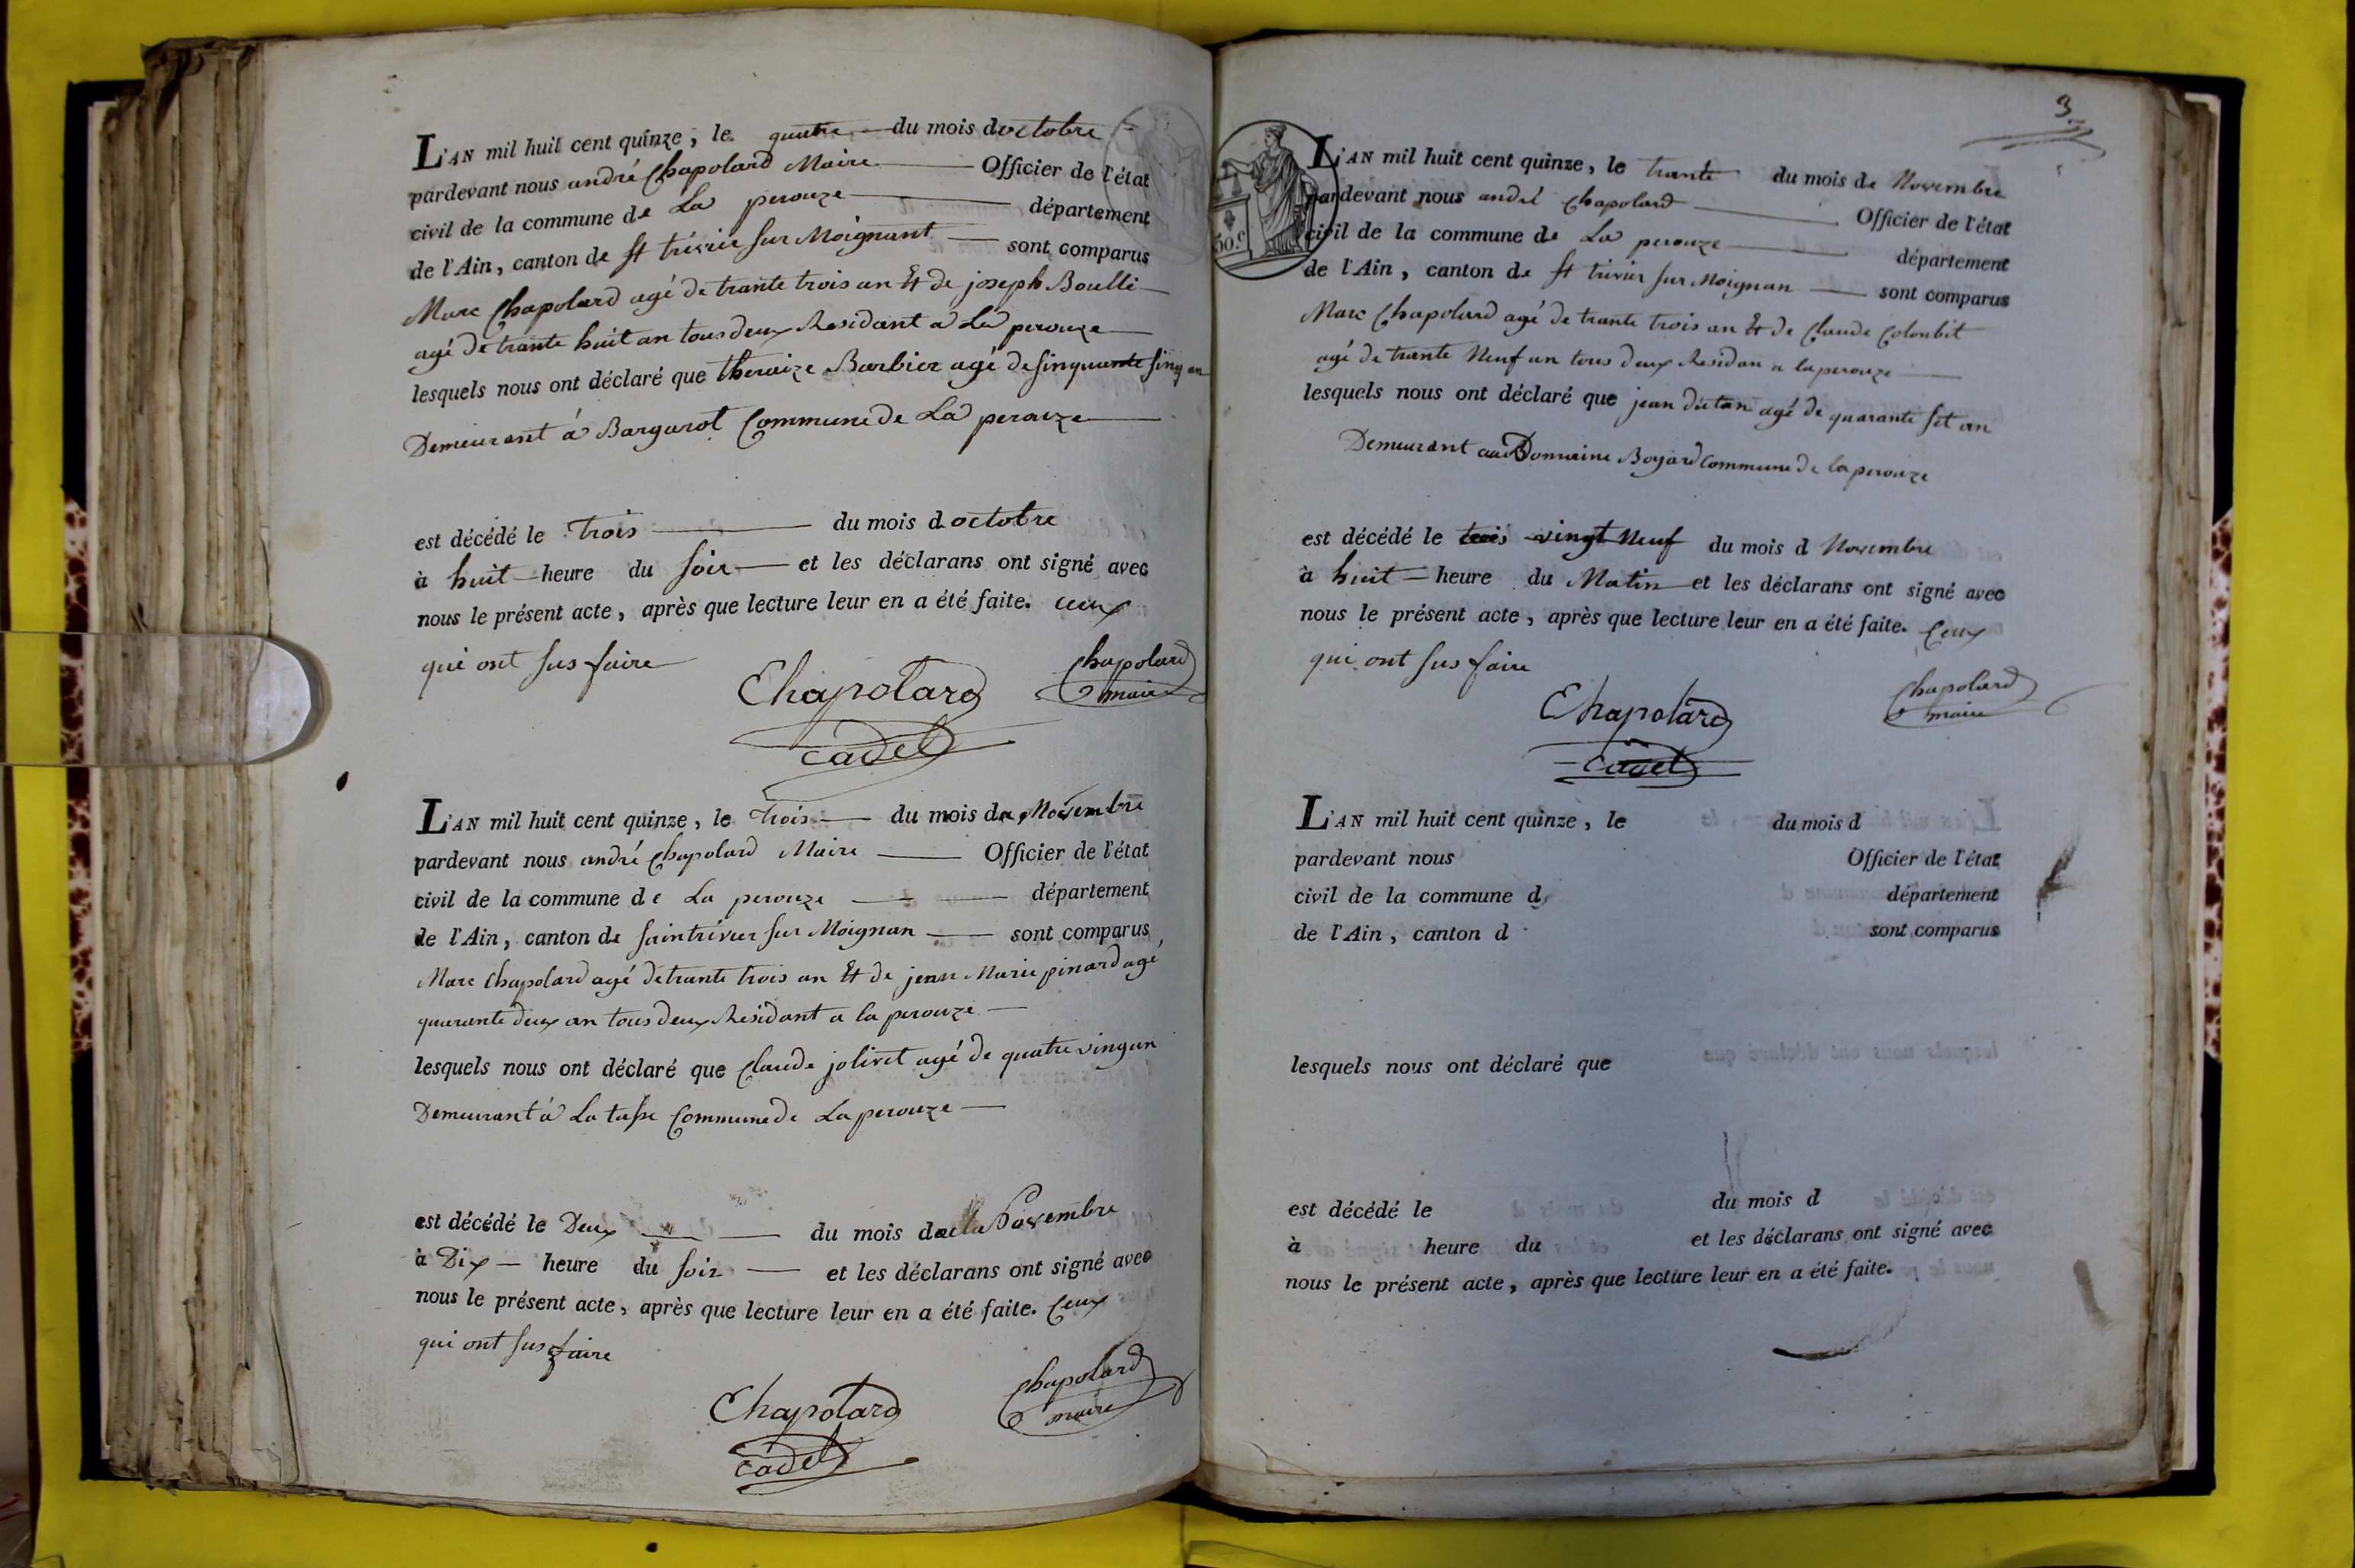 L'AN mil huit cent quinze, le quatre du mois doctobre
pardevant nous andré Chapolard Maire Officier de l'état
civil de la commune de La perouze département
de l'Ain, canton de st trivier sur Moignant sont comparus
Marc Chapolard agé de trante trois an Et de joseph Boulli
agé de trante huit an tous deux Residant a La perouze
lesquels nous ont déclaré que theraize Barbier agé de sinquante sinq an
Demeurant á Bargarot Commune de La perouze
est décédé le trois du mois doctobre
à huit heure du soir et les déclarans ont signé avec
nous le présent acte, après que lecture leur en a été faite. ceux
qui ont sus faire
Chapolard
Chapolard maire
cadet
L'AN mil huit cent quinze, le trois du mois de Novembre
pardevant nous andré Chapolard Maire Officier de l'état
civil de la commune de La perouze département
de l'Ain, canton de saintrivier sur Moignan sont comparus
Marc Chapolard agé de trante trois an Et de jean Marie pinard agé
quarante deux an tous deux Residant a la perouze
lesquels nous ont déclaré que Claude jolivet agé de quatre vingun
Demeurant á La tasse Commune de La perouze
est décédé le Deux du mois de Novembre
à Dix heure du soir et les déclarans ont signé avec
nous le présent acte, après que lecture leur en a été faite. Ceux
qui ont sus faire
Chapolard
Chapolard maire
cadet
3
50.c
L'AN mil huit cent quinze, le trante du mois de Novembre
pardevant nous andré Chapolard Officier de l'état
civil de la commune de La perouze département
de l'Ain, canton de st trivier sur Moignan sont comparus
Marc Chapolard agé de trante trois an Et de Claude Colonbit
agé de trante Neuf an tous deux Residan a la perouze
lesquels nous ont déclaré que jean dutan agé de quarante set an
Demeurant au Domaine Boyard commune de la perouze
est décédé le trois vingt Neuf du mois d Novembre
à huit heure du Matin et les déclarans ont signé avec
nous le présent acte, après que lecture leur en a été faite. Ceux
qui ont sus faire
Chapolard
Chapolard maire
cadet
L'AN mil huit cent quinze, le du mois d
pardevant nous Officier de l'état
civil de la commune d département
de l'Ain, canton d sont comparus
lesquels nous ont déclaré que
est décédé le du mois d
à heure du et les déclarans ont signé avec
nous le présent acte, après que lecture leur en a été faite.